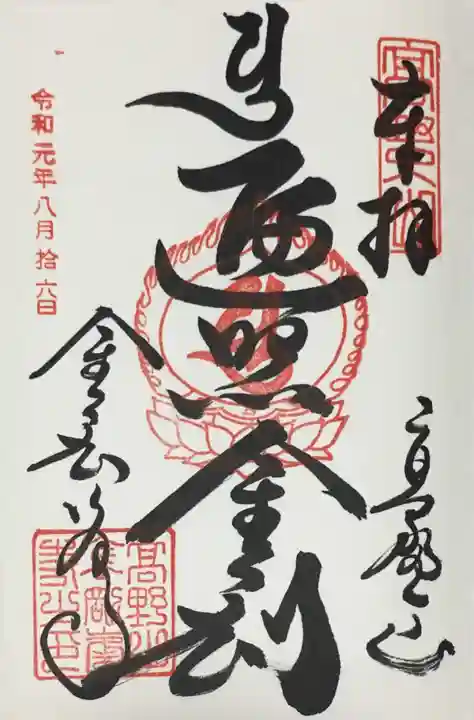 奉拝
高野山
遍照金剛
金剛峯寺
令和元年八月拾六日
高野山